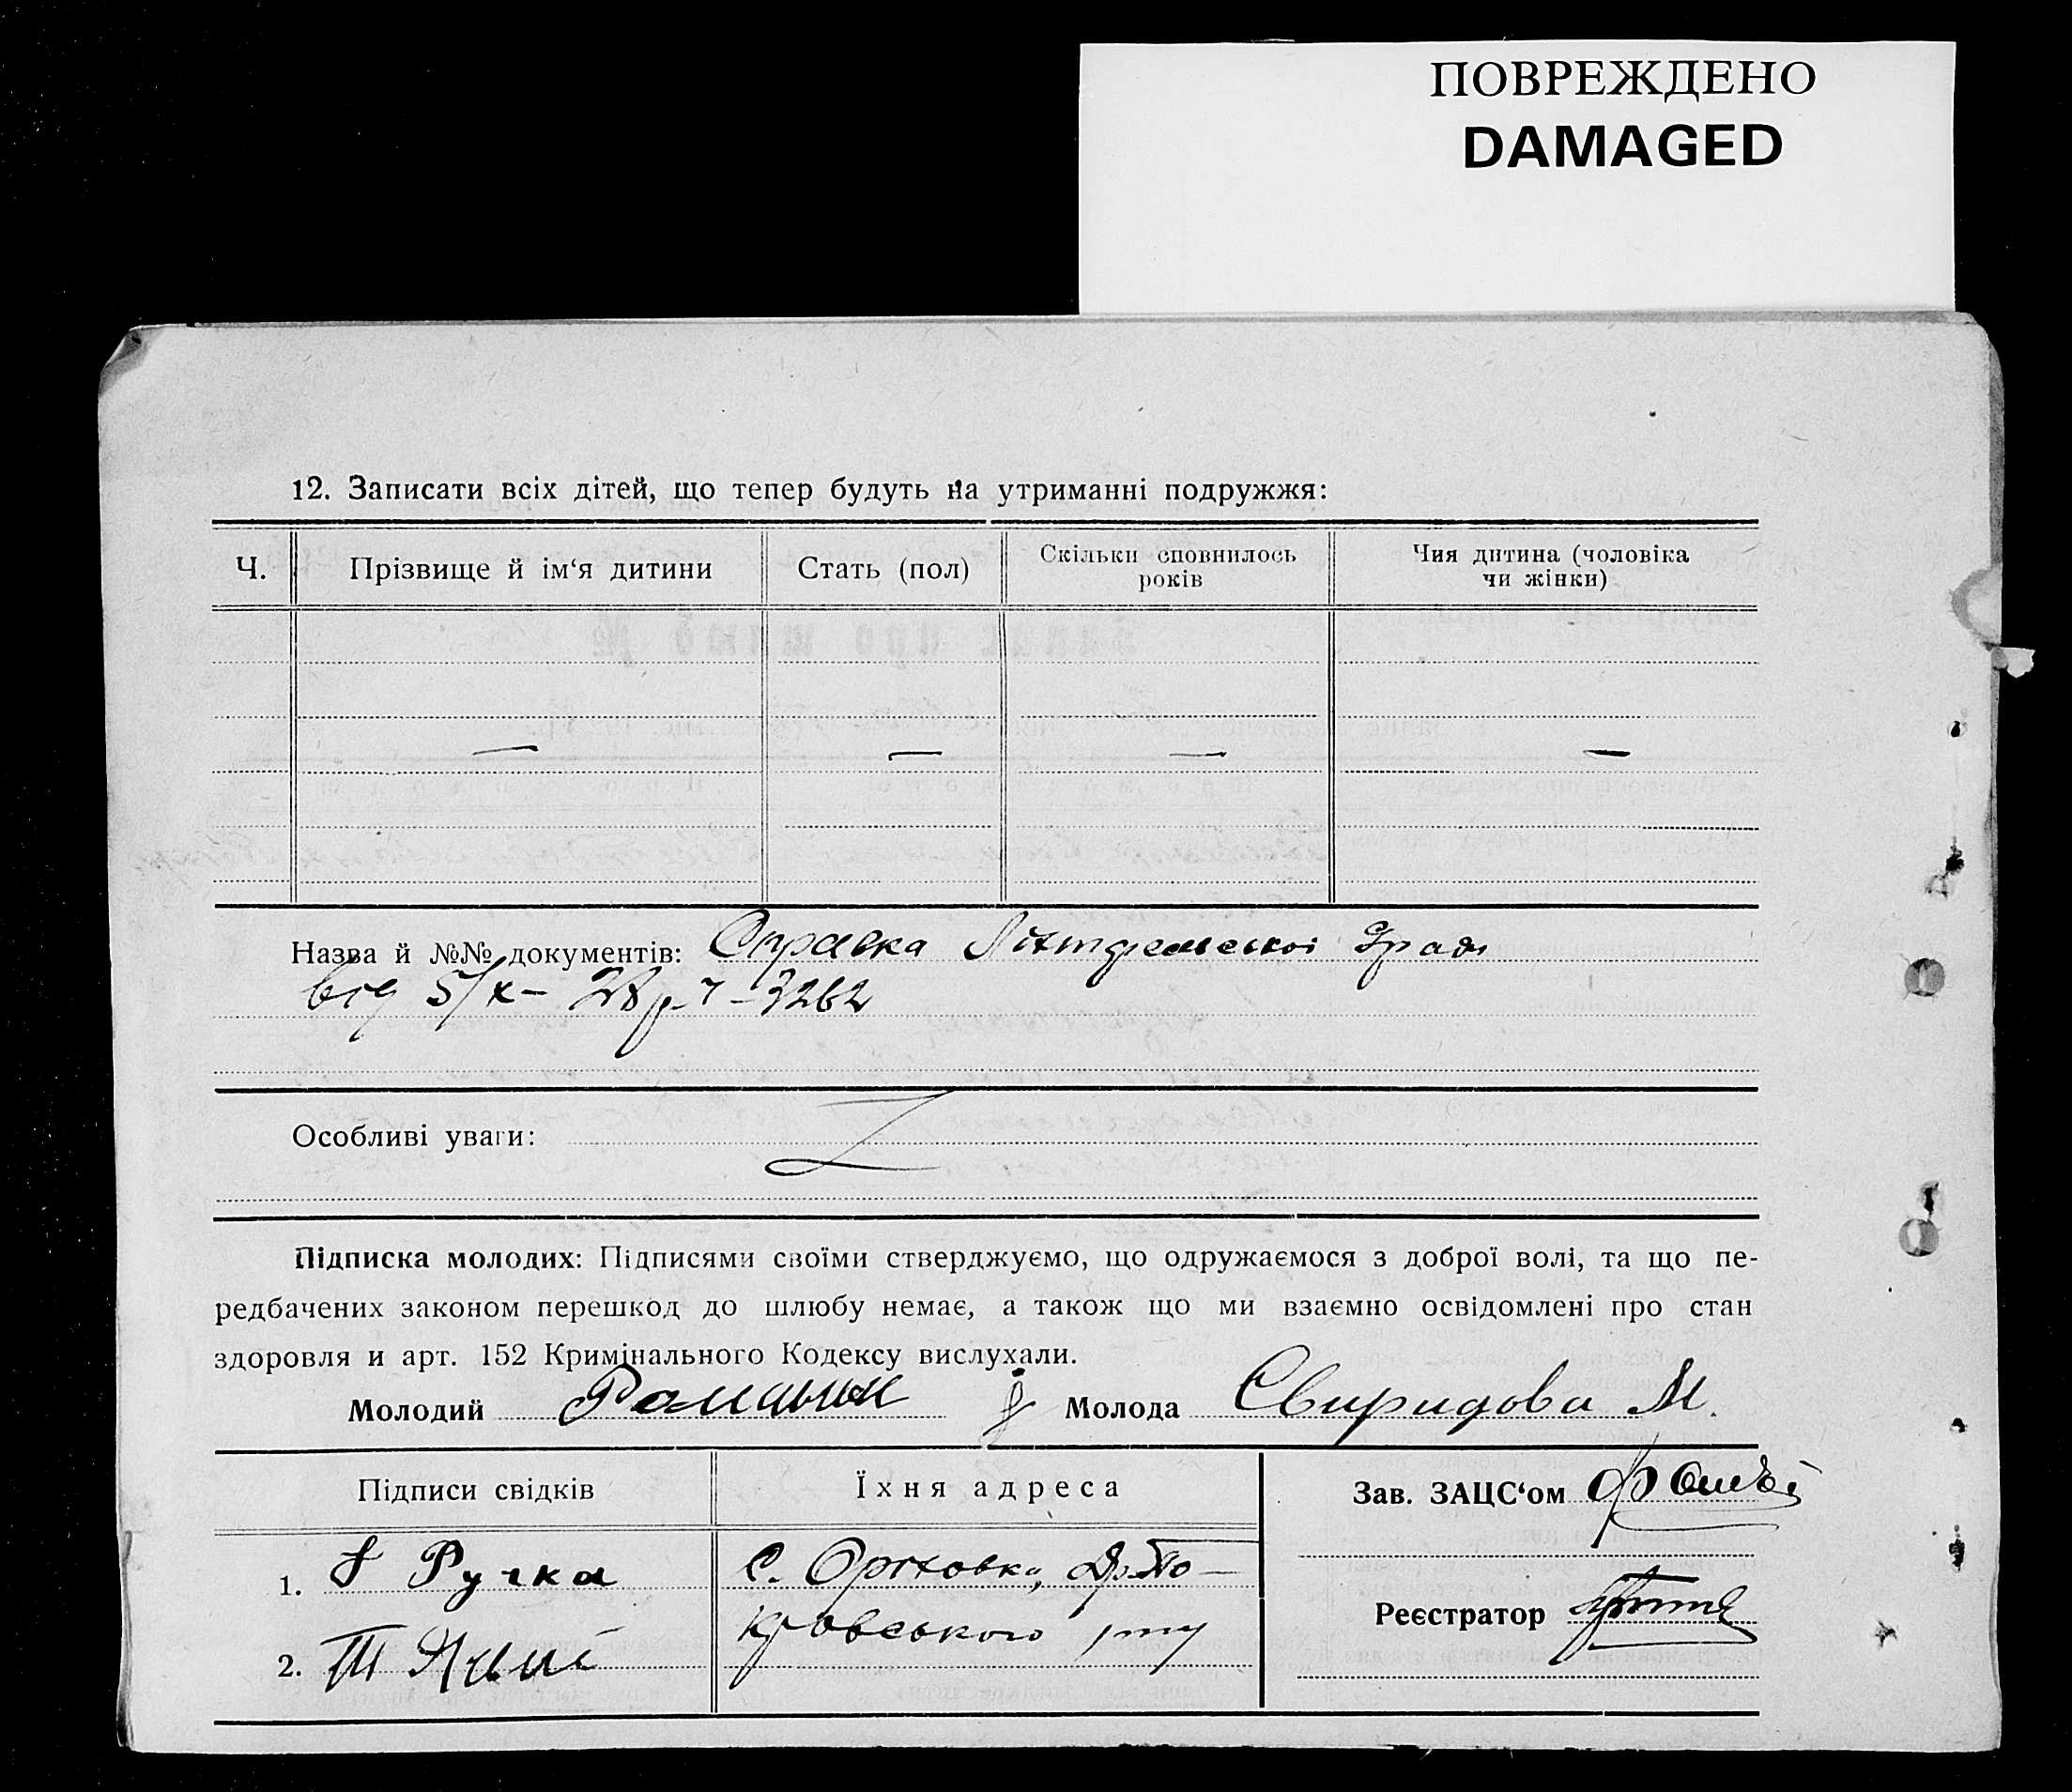 ПОВРЕЖДЕНО
DAMAGED
12. Записати всіх дітей, що тепер будуть на утриманні подружжя:
Ч.
Прізвище й ім‘я дитини
Стать (пол)
Скільки сповнилось
років
Чия дитина (чоловіка
чи жінки)
— — — —
Назва й №№ документів: Справка
від 5/X – 28 р. ч – 3262
Особливі уваги:
Підписка молодих: Підписями своїми стверджуємо, що одружаємося з доброї волі, та що пе-
редбачених законом перешкод до шлюбу немає, а також що ми взаємно освідомлені про стан
здоровля и арт. 152 Кримінального Кодексу вислухали.
Молодий Молода Свиридова М.
Підписи свідків
Їхня адреса
Зав. ЗАЦС‘ом
1. Ручка
с. Оріховка,
Реєстратор
2.